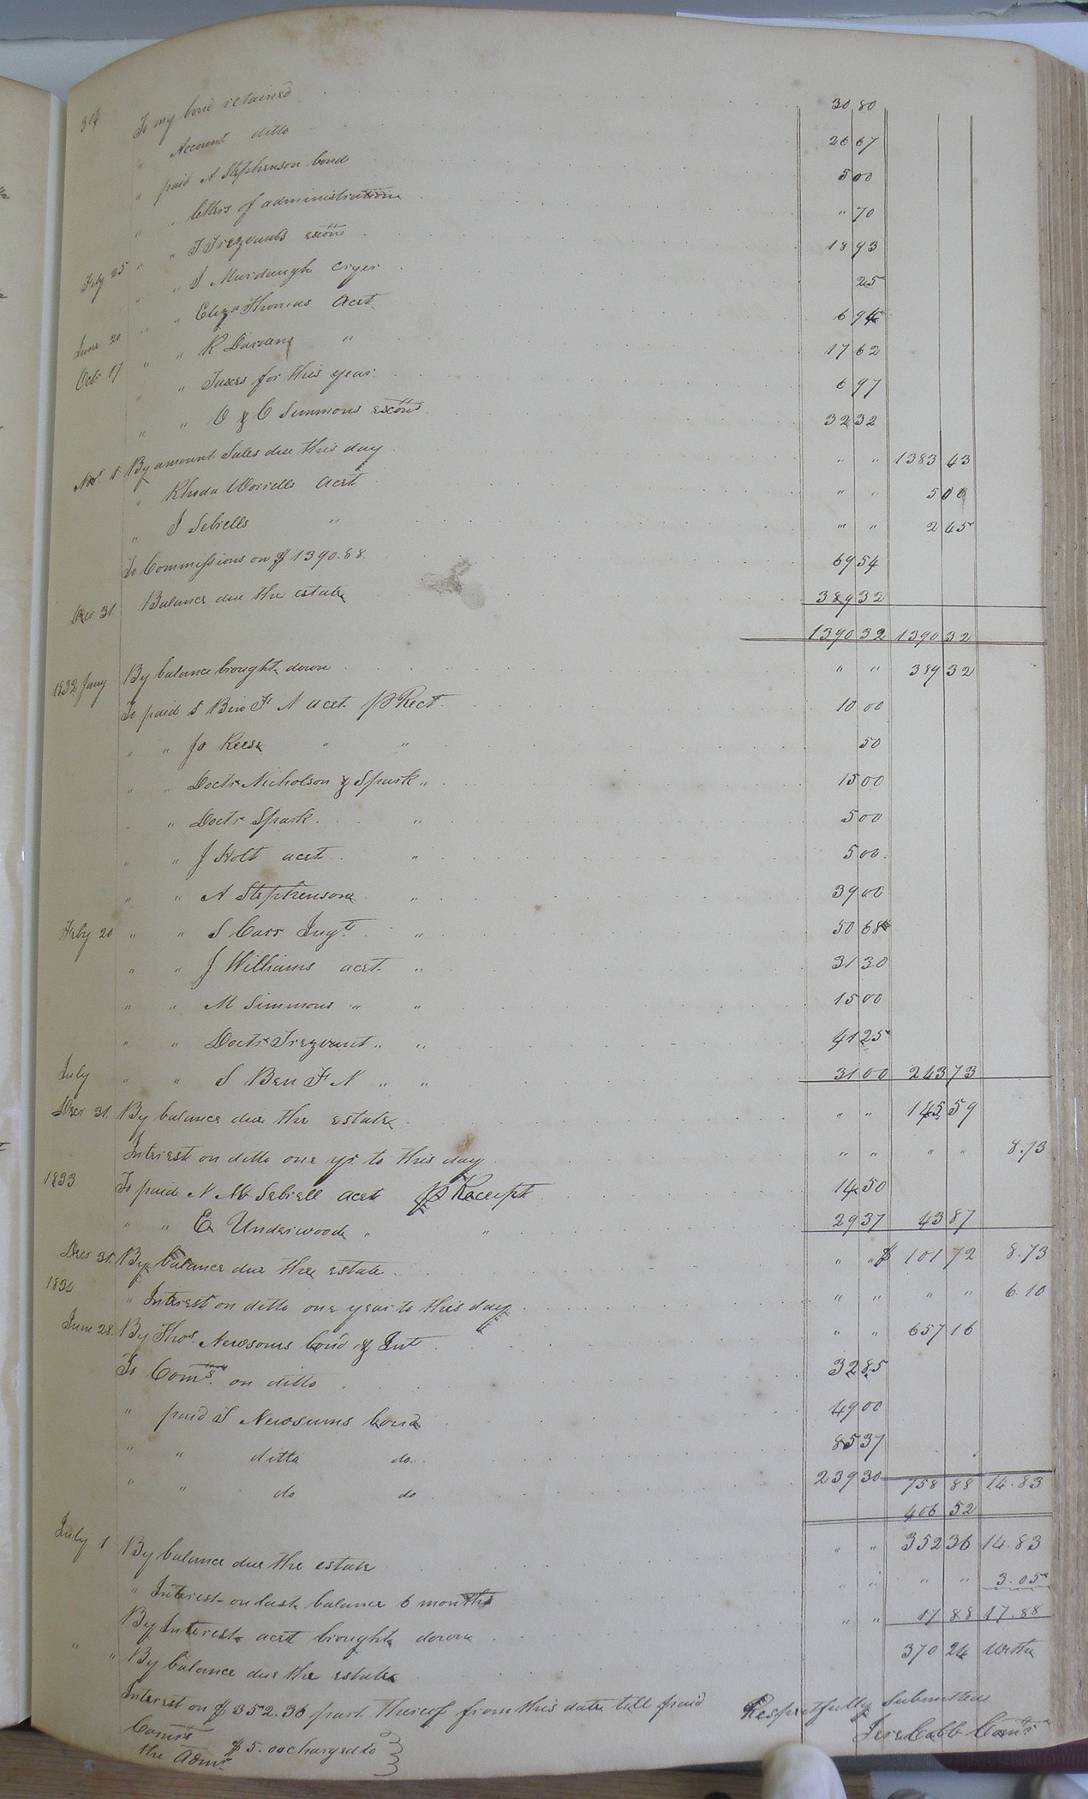 314 To my bond retained 30 80
" Account ditto 26 67
" paid A Stephenson bond 5 00
" " letters of administration " 70
" " J Trezvants exōns 18 93
Feby 25 " " S Murdaugh cryer 25
" " Eliza Thomas acct 6 94
June 20 " " K Darvany " 17 62
Octr 17 " " Taxes for this year 6 97
" " O & C Simmons exōns 32 32
Novr 1 By amount Sales due this day " " 1383 43
" Rhoda Worrells acct " " 5 00
" J Sebrells " " " 2 45
To Commissions on $1390.88. 69 54
Decr 31 Balance due the estate 389 32
1390 32 1390 32
1832 Jany By balance brought down " " 389 32
To paid S Ben F N acct p Rect 10 00
" " Jo Reese " " 50
" " Doctr Nicholson & Spark " 15 00
" " Doctr Spark " 5 00
" " J Holt acct " 5 00
" " A Stephenson " 39 00
Feby 20 " " S Carr Jugt " 50 68
" " J Williams acct " 31 30
" " M Simmons " " 15 00
" " Doctr Trezvant " " 41 25
July " " S Ben F N " " 31 00 243 73
Decr 31. By balance due the estate " " 145 59
Interest on ditto one yr to this day " " " " 8.73
1833 To paid N M Sebrell acct p Receipt 14 50
" " E Underwood " " 29 37 43 87
Decr 31. By balance due the estate " " $ 101 72 8.73
1834 " Interest on ditto one year to this day " " " " 6.10
June 28 By Thos Newsoms bond & Int " " 657 16
To Coms. on ditto 32 85
" paid S Newsums bond 49 00
" " ditto do 85 37
" " do do 239 30 758 88 14.83
406 52
July 1 By balance due the estate " " 352 36 14.83
" Interest on last balance 6 months " " " " 3.05
By Interest acct brought down " " 17 88 17.88
" " By balance due the estate 370 24 with
Interest on $352.36 part thereof from this date till paid
Respectfully Submitted
Comrs $5.00 charged to
the Admr
Jere Cobb Comr